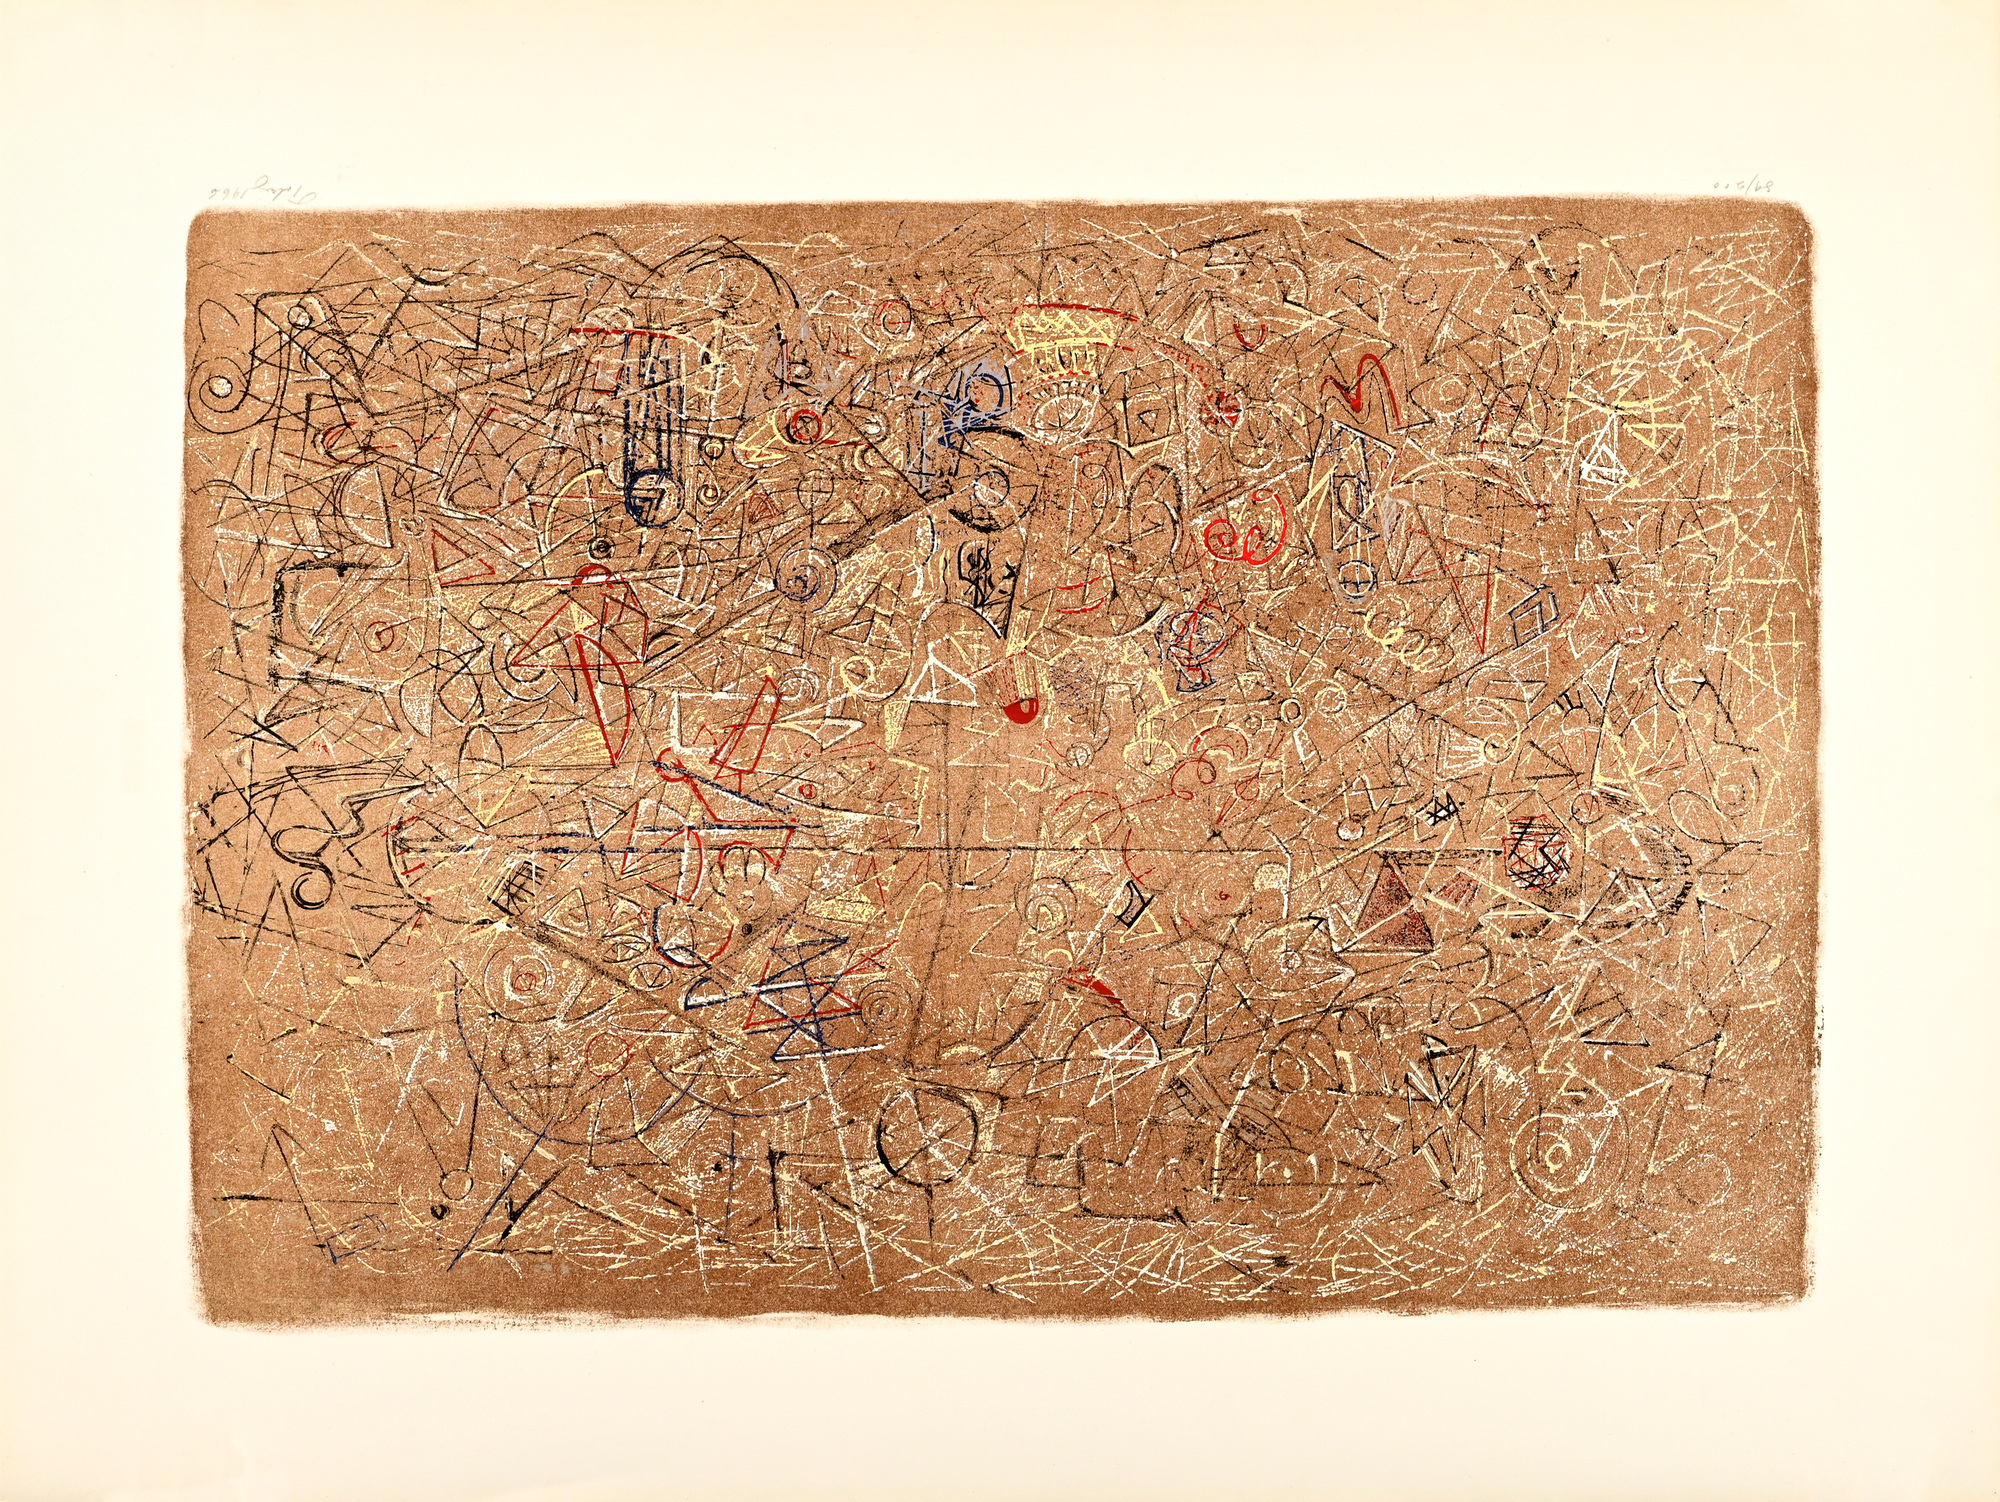 Tobey 1966
89/200